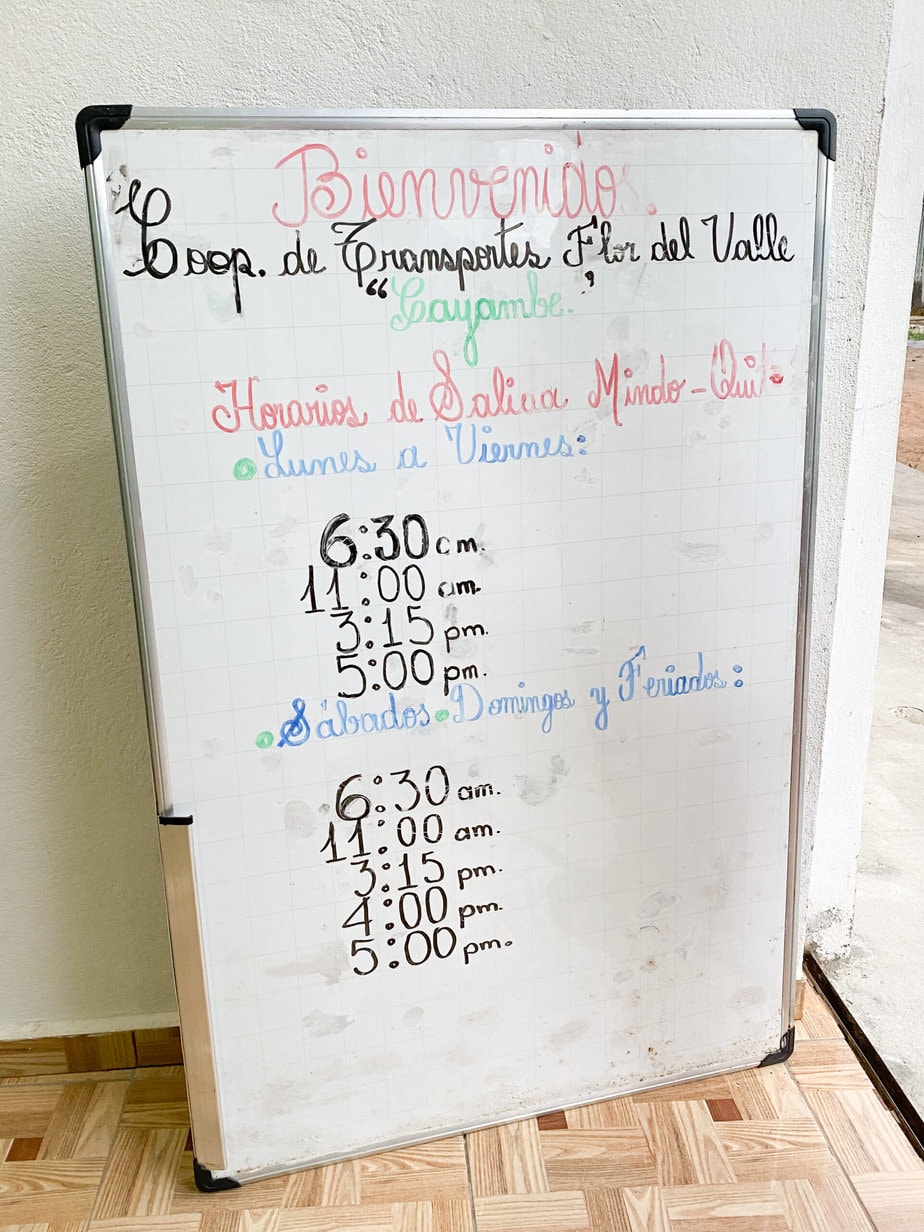 Bienvenidos.
Coop. de Transportes Flor del Valle
"Cayambe."
Horarios de Salida Mindo - Quito
Lunes a Viernes:
6:30 am.
11:00 am.
3:15 pm.
5:00 pm.
Sábados Domingos y Feriados:
6:30 am.
11:00 am.
3:15 pm.
4:00 pm.
5:00 pm.